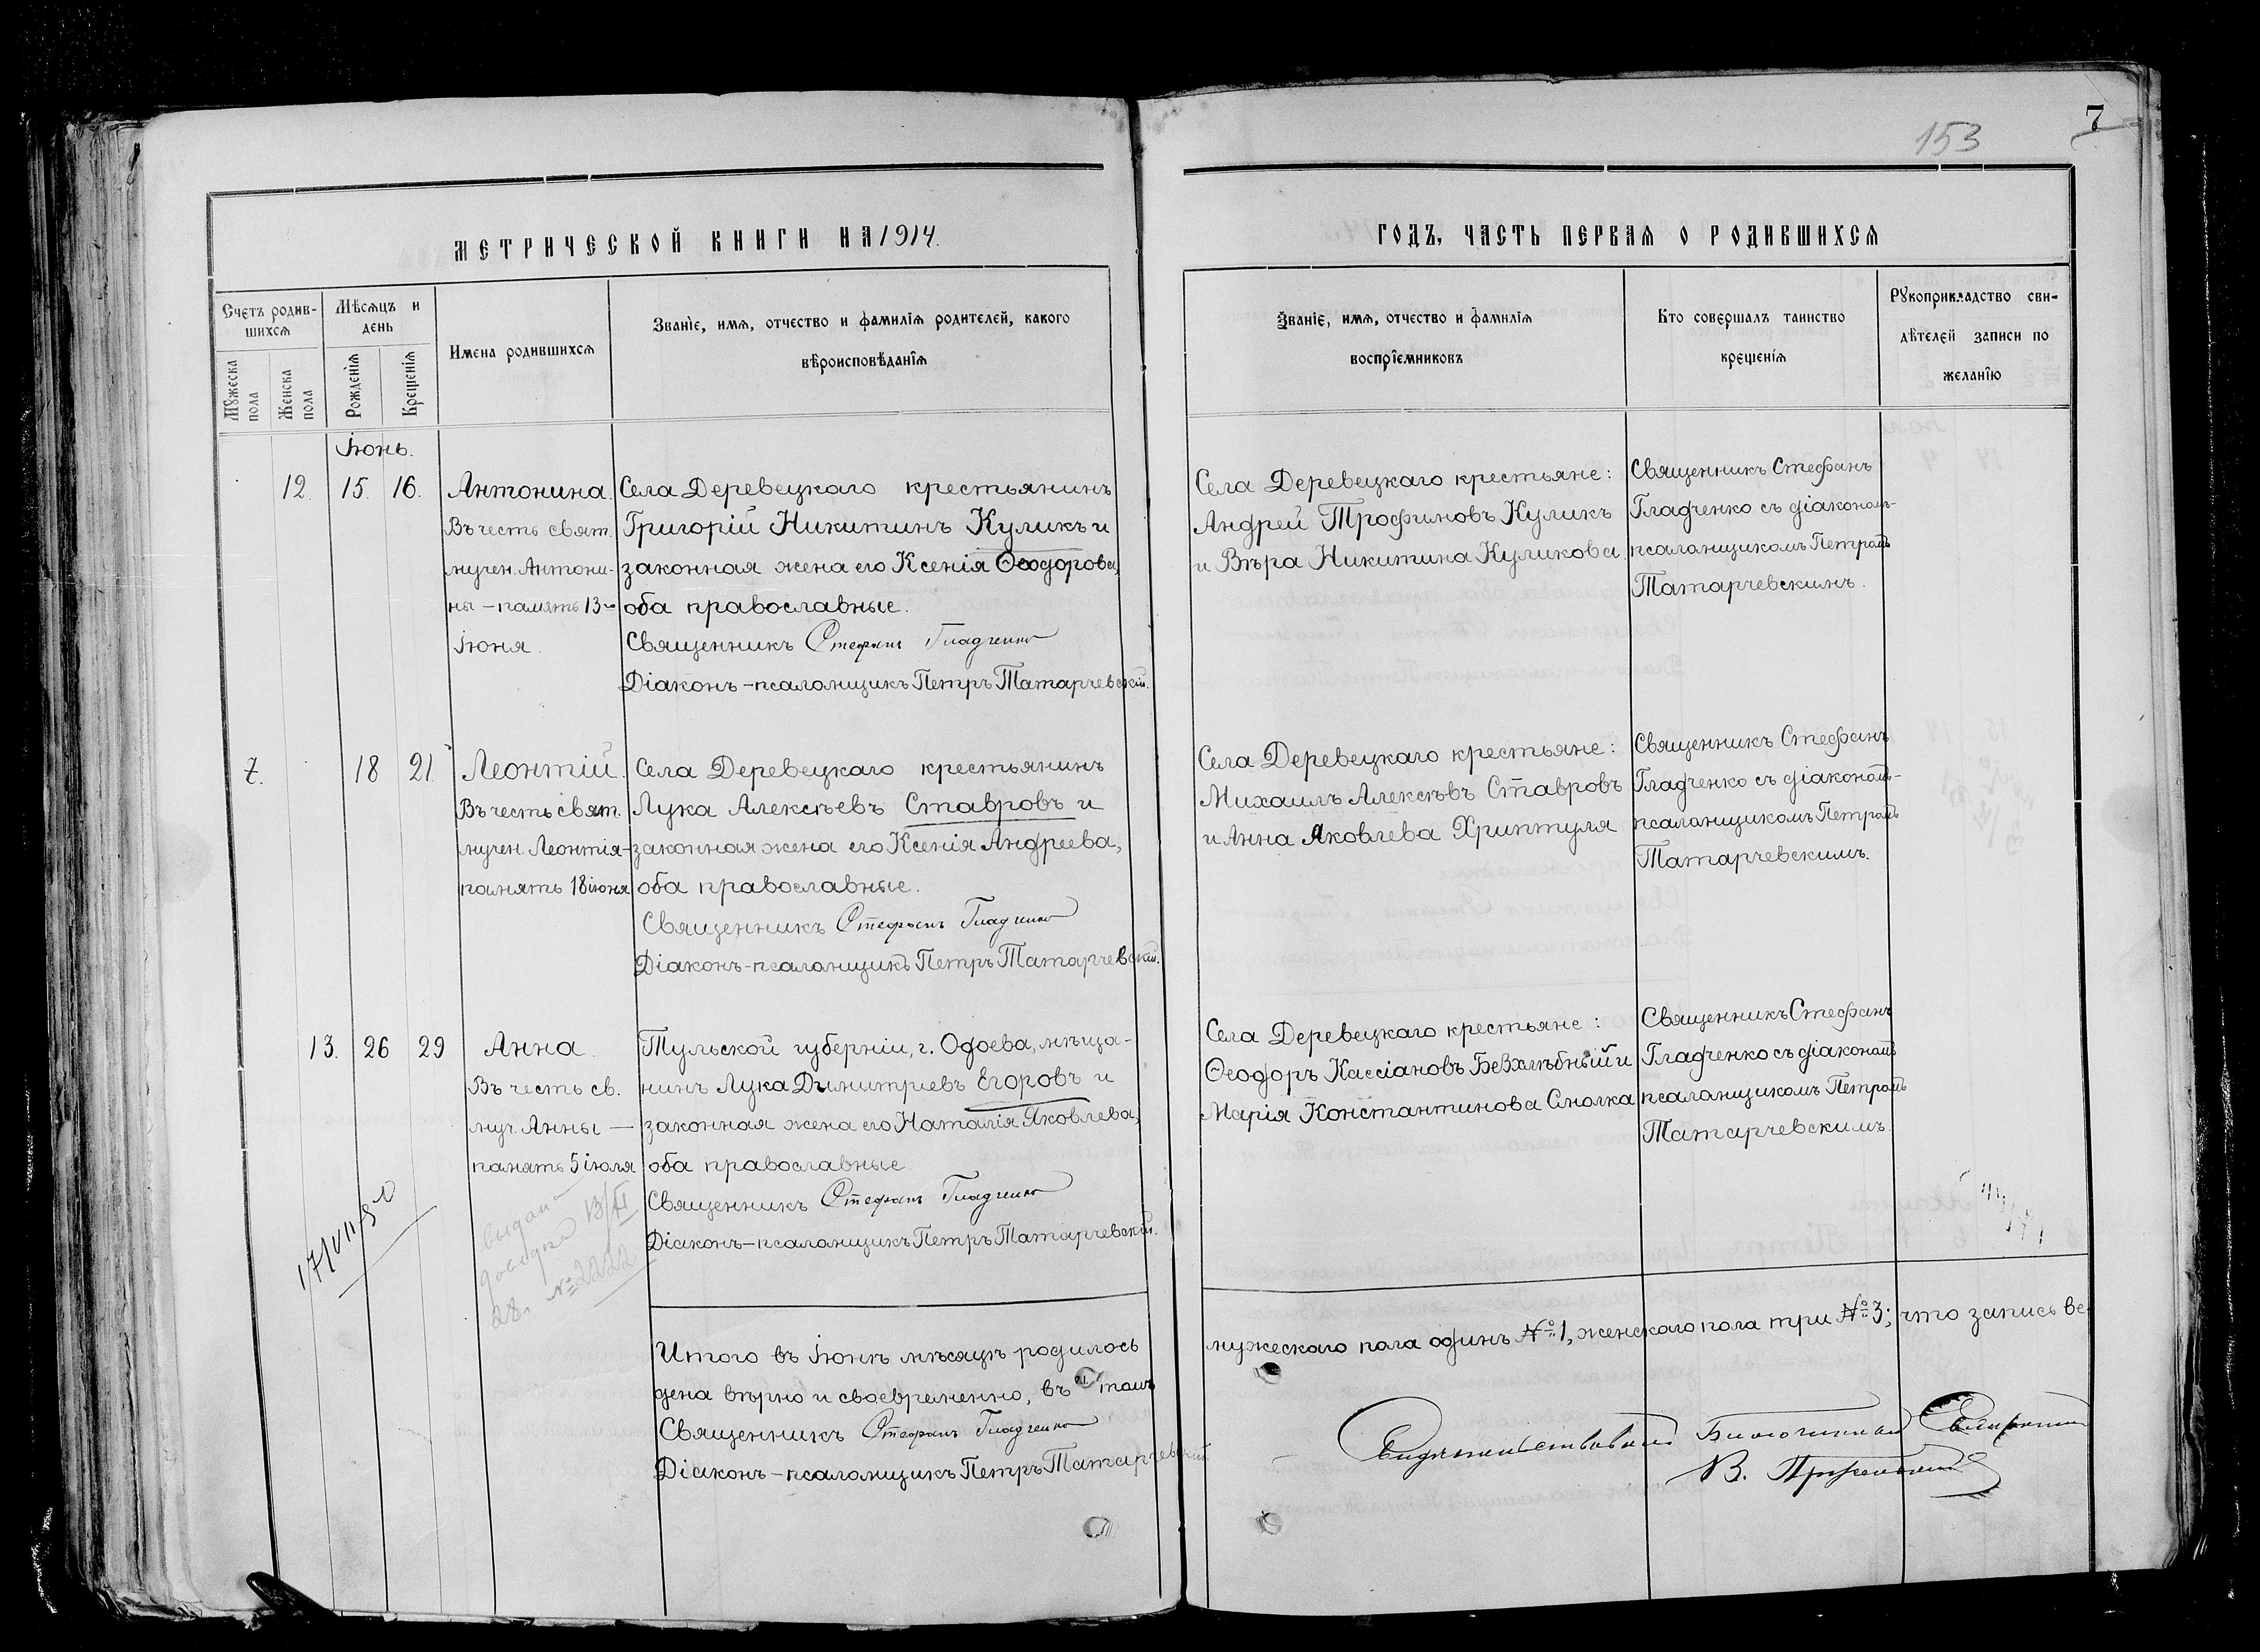 153
7
МЕТРИЧЕСКОЙ КНИГИ НА 1914.
ГОДЪ, ЧАСТЬ ПЕРВАЯ О РОДИВШИХСЯ
Счетъ родив-
шихся
Мужеска пола
Женска пола
Мѣсяцъ и
день
Рожденія
Крещенія
Имена родившихся
Званіе, имя, отчество и фамилія родителей, какого
вѣроисповѣданія
Званіе, имя, отчество и фамилія
воспріемниковъ
Кто совершалъ таинство
крещенія
Рукоприкладство сви-
дѣтелей записи по
желанію
Іюнь.
12. 15. 16.
Антонина.
Въ честь свят.
мучен. Антони-
ны – память 13го
іюня.
Села Деревецкаго крестьянинъ
Григорій Никитинъ Куликъ и
законная жена его Ксенія Ѳеодорова,
оба православные.
Священникъ Стефанъ Гладченко
Діаконъ-псаломщикъ Петръ Татарчевскій.
Села Деревецкаго крестьяне:
Андрей Трофимовъ Куликъ
и Вѣра Никитина Куликова
Священникъ Стефанъ
Гладченко съ діаконом-
псаломщикомъ Петромъ
Татарчевскимъ.
7. 18 21.
Леонтій.
Въ честь свят.
мучен. Леонтія-
память 18 іюня
Села Деревецкаго крестьянинъ
Лука Алексѣевъ Ставровъ и
законная жена его Ксенія Андреева,
оба православные.
Священникъ Стефанъ Гладченко
Діаконъ-псаломщикъ Петръ Татарчевскій.
Села Деревецкаго крестьяне:
Михаилъ Алексѣвъ Ставровъ
и Анна Яковлева Хриптуля
Священникъ Стефанъ
Гладченко съ діакономъ-
псаломщикомъ Петромъ
Татарчевскимъ.
13. 26 29
Анна.
Въ честь св.
муч. Анны —
память 5 іюля
Тульской губерніи, г. Одоева, мѣща-
нинъ Лука Дымитріевъ Егоровъ и
законная жена его Наталія Яковлева,
оба православные.
Священникъ Стефанъ Гладченко
Діаконъ-псаломщикъ Петръ Татарчевскій.
Села Деревецкаго крестьяне:
Ѳеодоръ Кассіановъ Безхлѣбный и
Марія Константинова Смолка
Священникъ Стефанъ
Гладченко съ діакономъ
псаломщикомъ Петромъ
Татарчевскимъ.
17/VII-50
видан
довідка 13/VI
28. № 2222
Итого въ Іюнѣ мѣсяцѣ родилось
мужескаго пола одинъ №1, женскаго пола три №3; что запись ве-
дена вѣрно и своевременно, въ томъ
Священникъ Стефанъ Гладченко
Діаконъ-псаломщикъ Петръ Татарчевскій
Свидѣтельствовалъ Благочинный Священникъ
В.